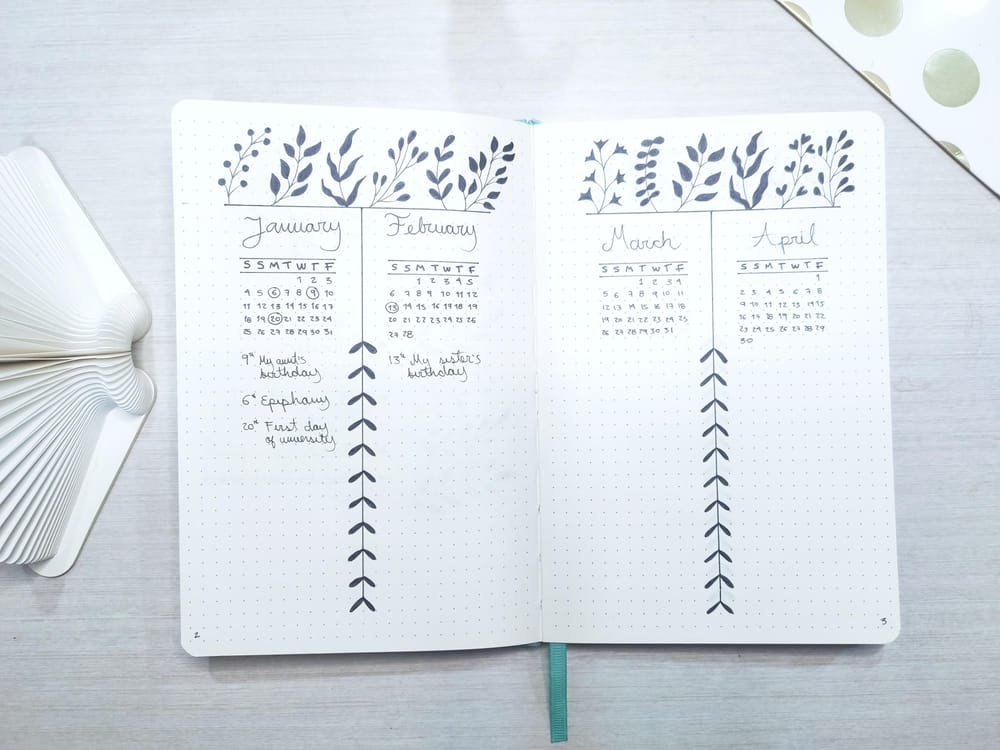 January
S S M T W T F
1 2 3
4 5 6 7 8 9 10
11 12 13 14 15 16 17
18 19 20 21 22 23 24
25 26 27 28 29 30 31
9th My aunt's
birthday
6th Epiphany
20th First day
of university
February
S S M T W T F
1 2 3 4 5
6 7 8 9 10 11 12
13 14 15 16 17 18 19
20 21 22 23 24 25 26
27 28
13th My sister's
birthday
2
March
S S M T W T F
1 2 3 4
5 6 7 8 9 10 11
12 13 14 15 16 17 18
19 20 21 22 23 24 25
26 27 28 29 30 31
April
S S M T W T F
1
2 3 4 5 6 7 8
9 10 11 12 13 14 15
16 17 18 19 20 21 22
23 24 25 26 27 28 29
30
3